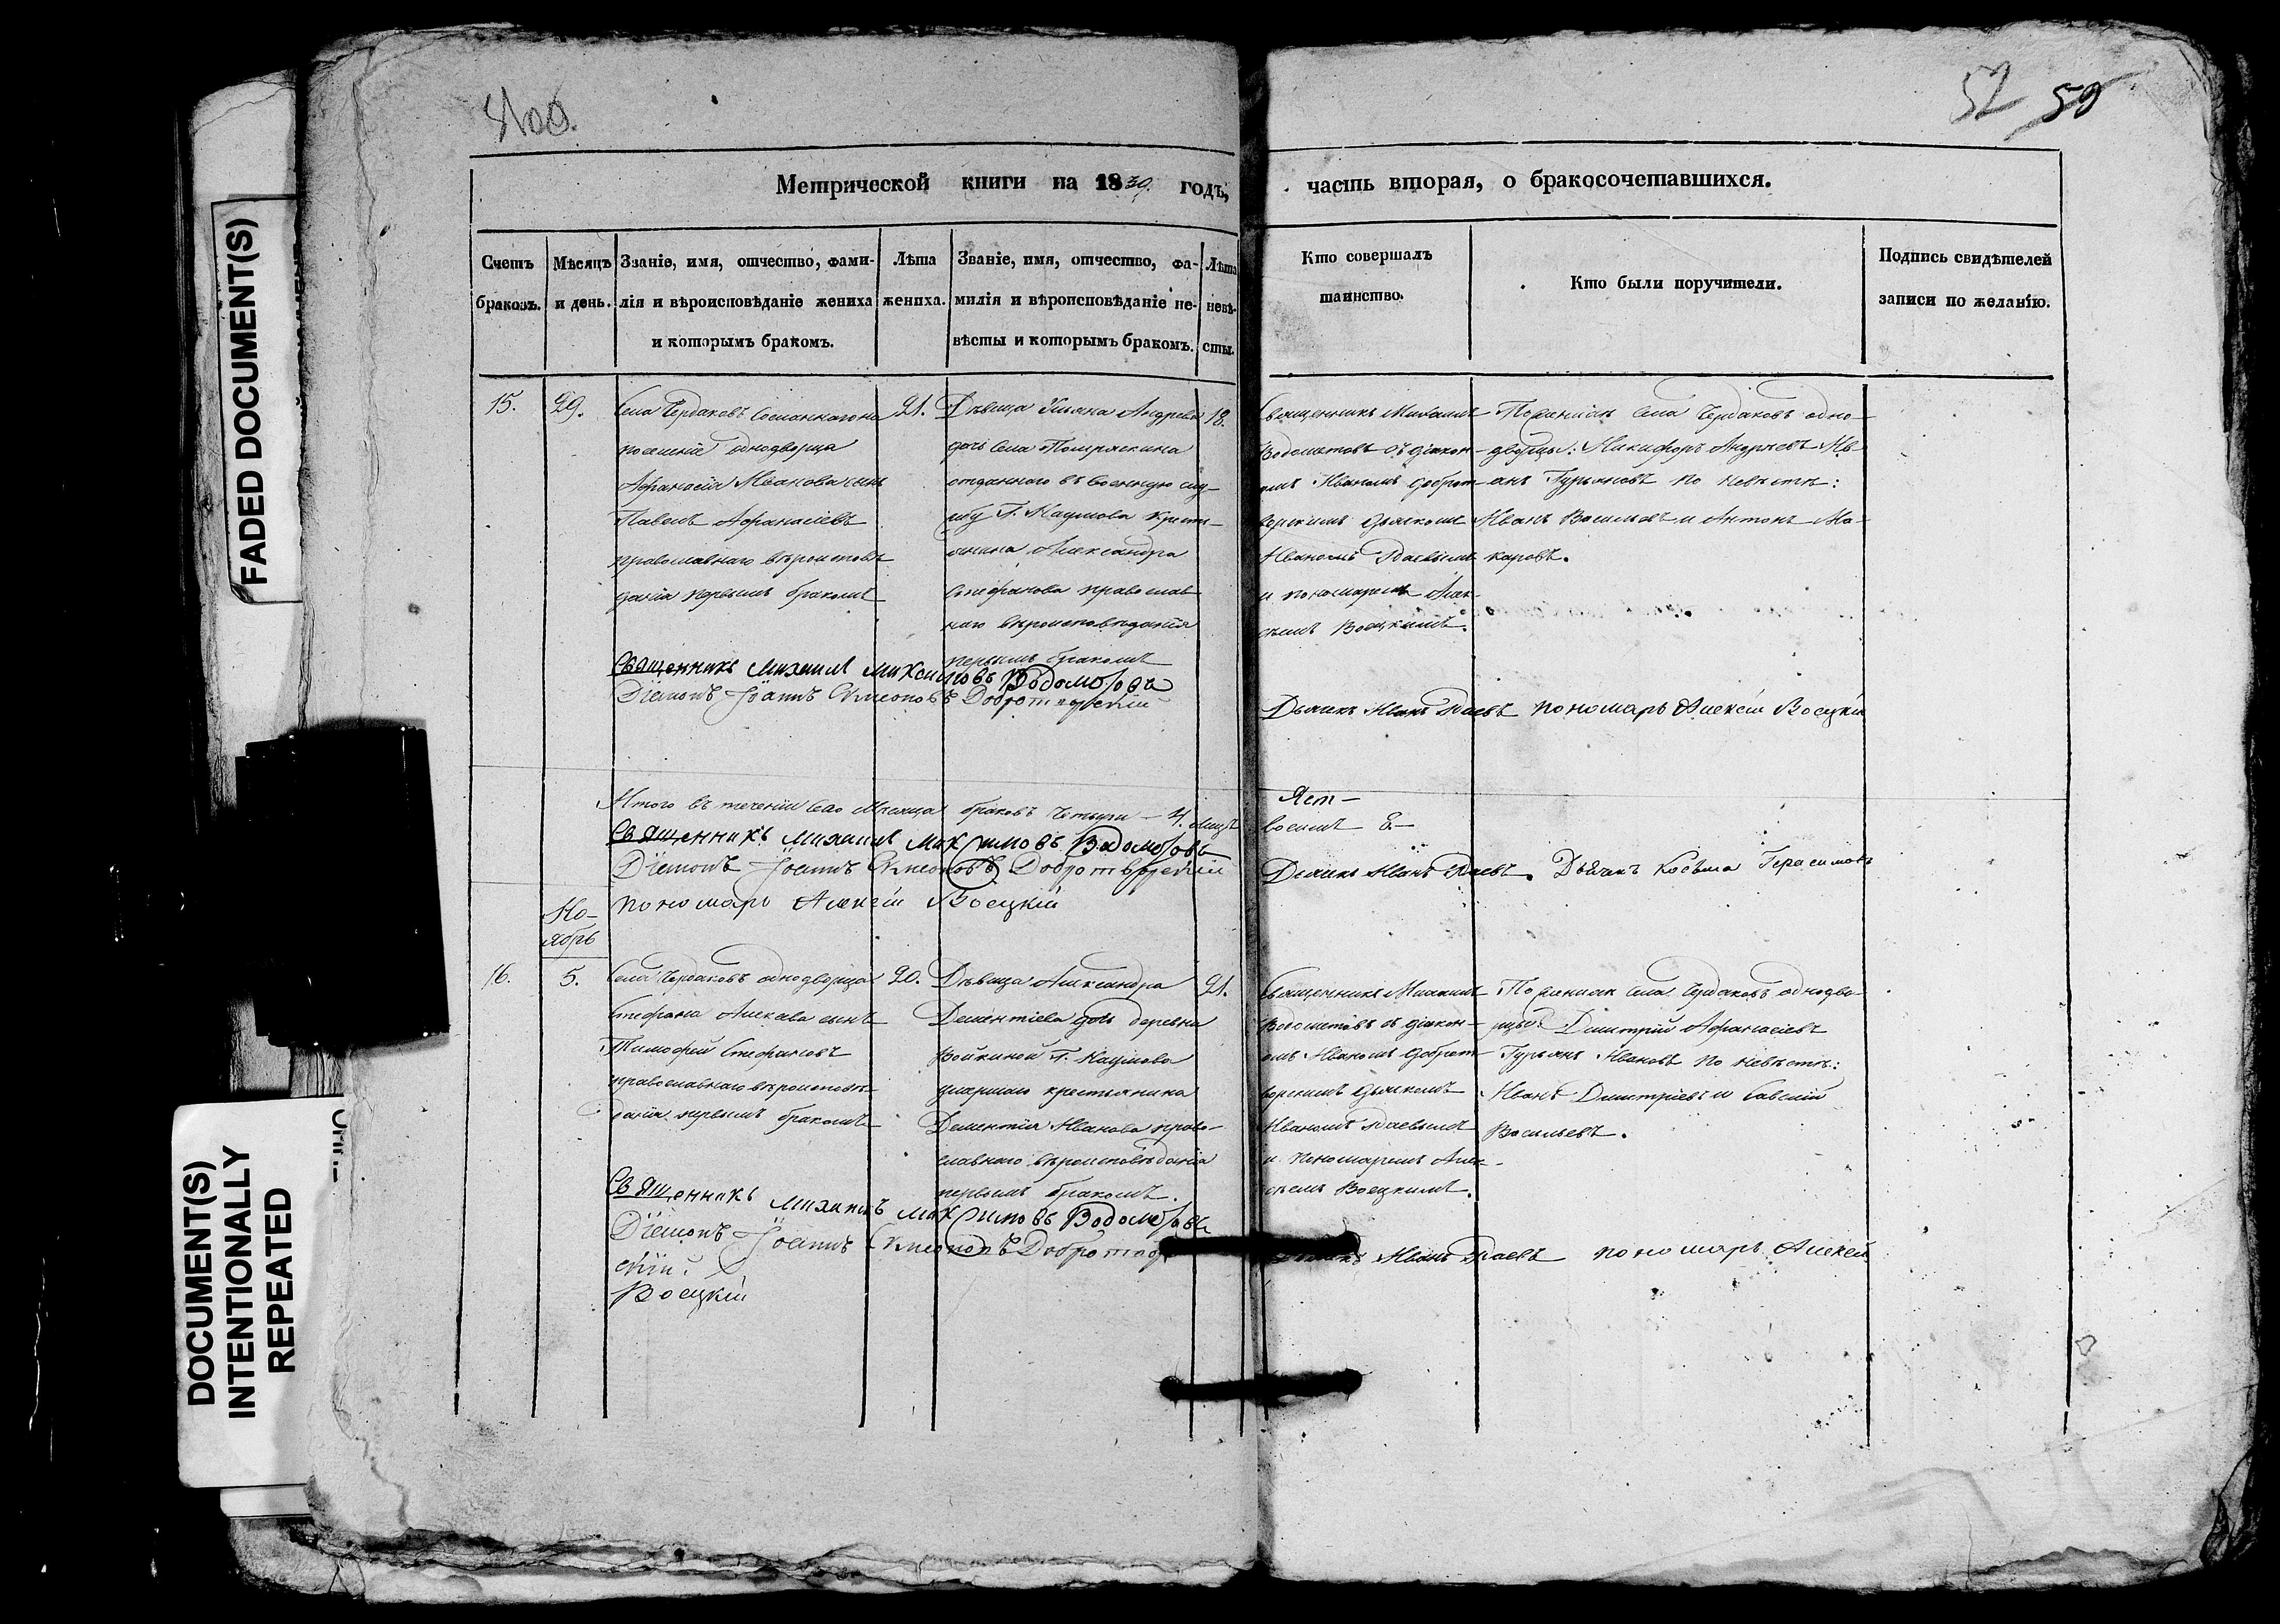 FADED DOCUMENT(S)
DOCUMENT(S)
INTENTIONALLY
REPEATED
52 59
Метрической книги на 1839. годъ, часть вторая, о бракосочетавшихся.
Счетъ браковъ.
Мѣсяцъ и день.
Званіе, имя, отчество, фами-
лія и вѣроисповѣданіе жениха
и которымъ бракомъ.
Лѣта
жениха.
Званіе, имя, отчество, фа-
милія и вѣроисповѣданіе не-
вѣсты и которымъ бракомъ.
Лѣта
невѣ-
сты.
Кто совершалъ
таинство.
Кто были поручители.
Подпись свидѣтелей
записи по желанію.
15.
29.
Села Чердаковъ Сосланнаго на
поселеніе однодворца
Афанасія Иванова сынъ
Павелъ Афанасіевъ
православнаго вѣроисповѣ
данія первымъ бракомъ
21.
Дѣвица Ульяна Андрева
дочь села Помряскина
отданнаго въ военную слу-
жбу Г. Наумова крестъ-
янина Александра
Стефанова православ
наго вѣроисповѣданія
первымъ бракомъ
18.
Священникъ Михаилъ
Водометовъ съ діакон-
омъ Иваномъ Доброт-
ворскимъ дьячкомъ
Иваномъ Раевымъ
и пономаремъ Алек-
сѣемъ Воецкимъ.
По женихѣ села Чердаковъ одно-
дворцы: Никифоръ Андреевъ Ив-
анъ Гурьяновъ по невѣстѣ:
Иванъ Васильевъ и Антонъ Ма-
каровъ.
Священникъ Михаилъ Максимовъ Водометовъ
Діаконъ Іоаннъ Симеоновъ Добротворскій
Дьячкъ Иванъ Раевъ Пономарь Алексій Воецкій
Итого въ теченіи сего Мѣсяца браковъ четыри — 4. лицъ восемь 8.—
Священникъ Михаилъ Максимовъ Водометовъ
Діаконъ Іоаннъ Симеоновъ Добротворскій
Дьячкъ Иванъ Раевъ. Дьячкъ Косьма Герасимовъ
Пономарь Алексій Воецкій
Но-
ябрь
16.
5.
Села Чердаковъ однодворца
Стефана Алекева сынъ
Тимофей Стефановъ
православнаго вѣроисповѣ-
данія первымъ бракомъ
20.
Дѣвица Александра
Дементіева дочь деревни
Войкиной Г. Наумова
умершаго крестьянина
Дементія Иванова право-
славнаго вѣроисповѣданія
первымъ бракомъ.
21.
Священникъ Михаилъ
Водометовъ съ діакон-
омъ Иваномъ Доброт-
ворскимъ дьячкомъ
Иваномъ Раевымъ
и пономаремъ Алек-
сѣемъ Воецкимъ.
По женихѣ села Чердаковъ однодво-
рцы: Димитрій Афанасіевъ
Гурьянъ Ивановъ по невѣстѣ:
Иванъ Димитріевъ и Савелій
Васильевъ.
Священникъ Михаилъ Максимовъ Водометовъ
Діаконъ Іоаннъ Симеоновъ Добротвор
скій.
Дьячкъ Иванъ Раевъ Пономарь Алексей
Воецкій